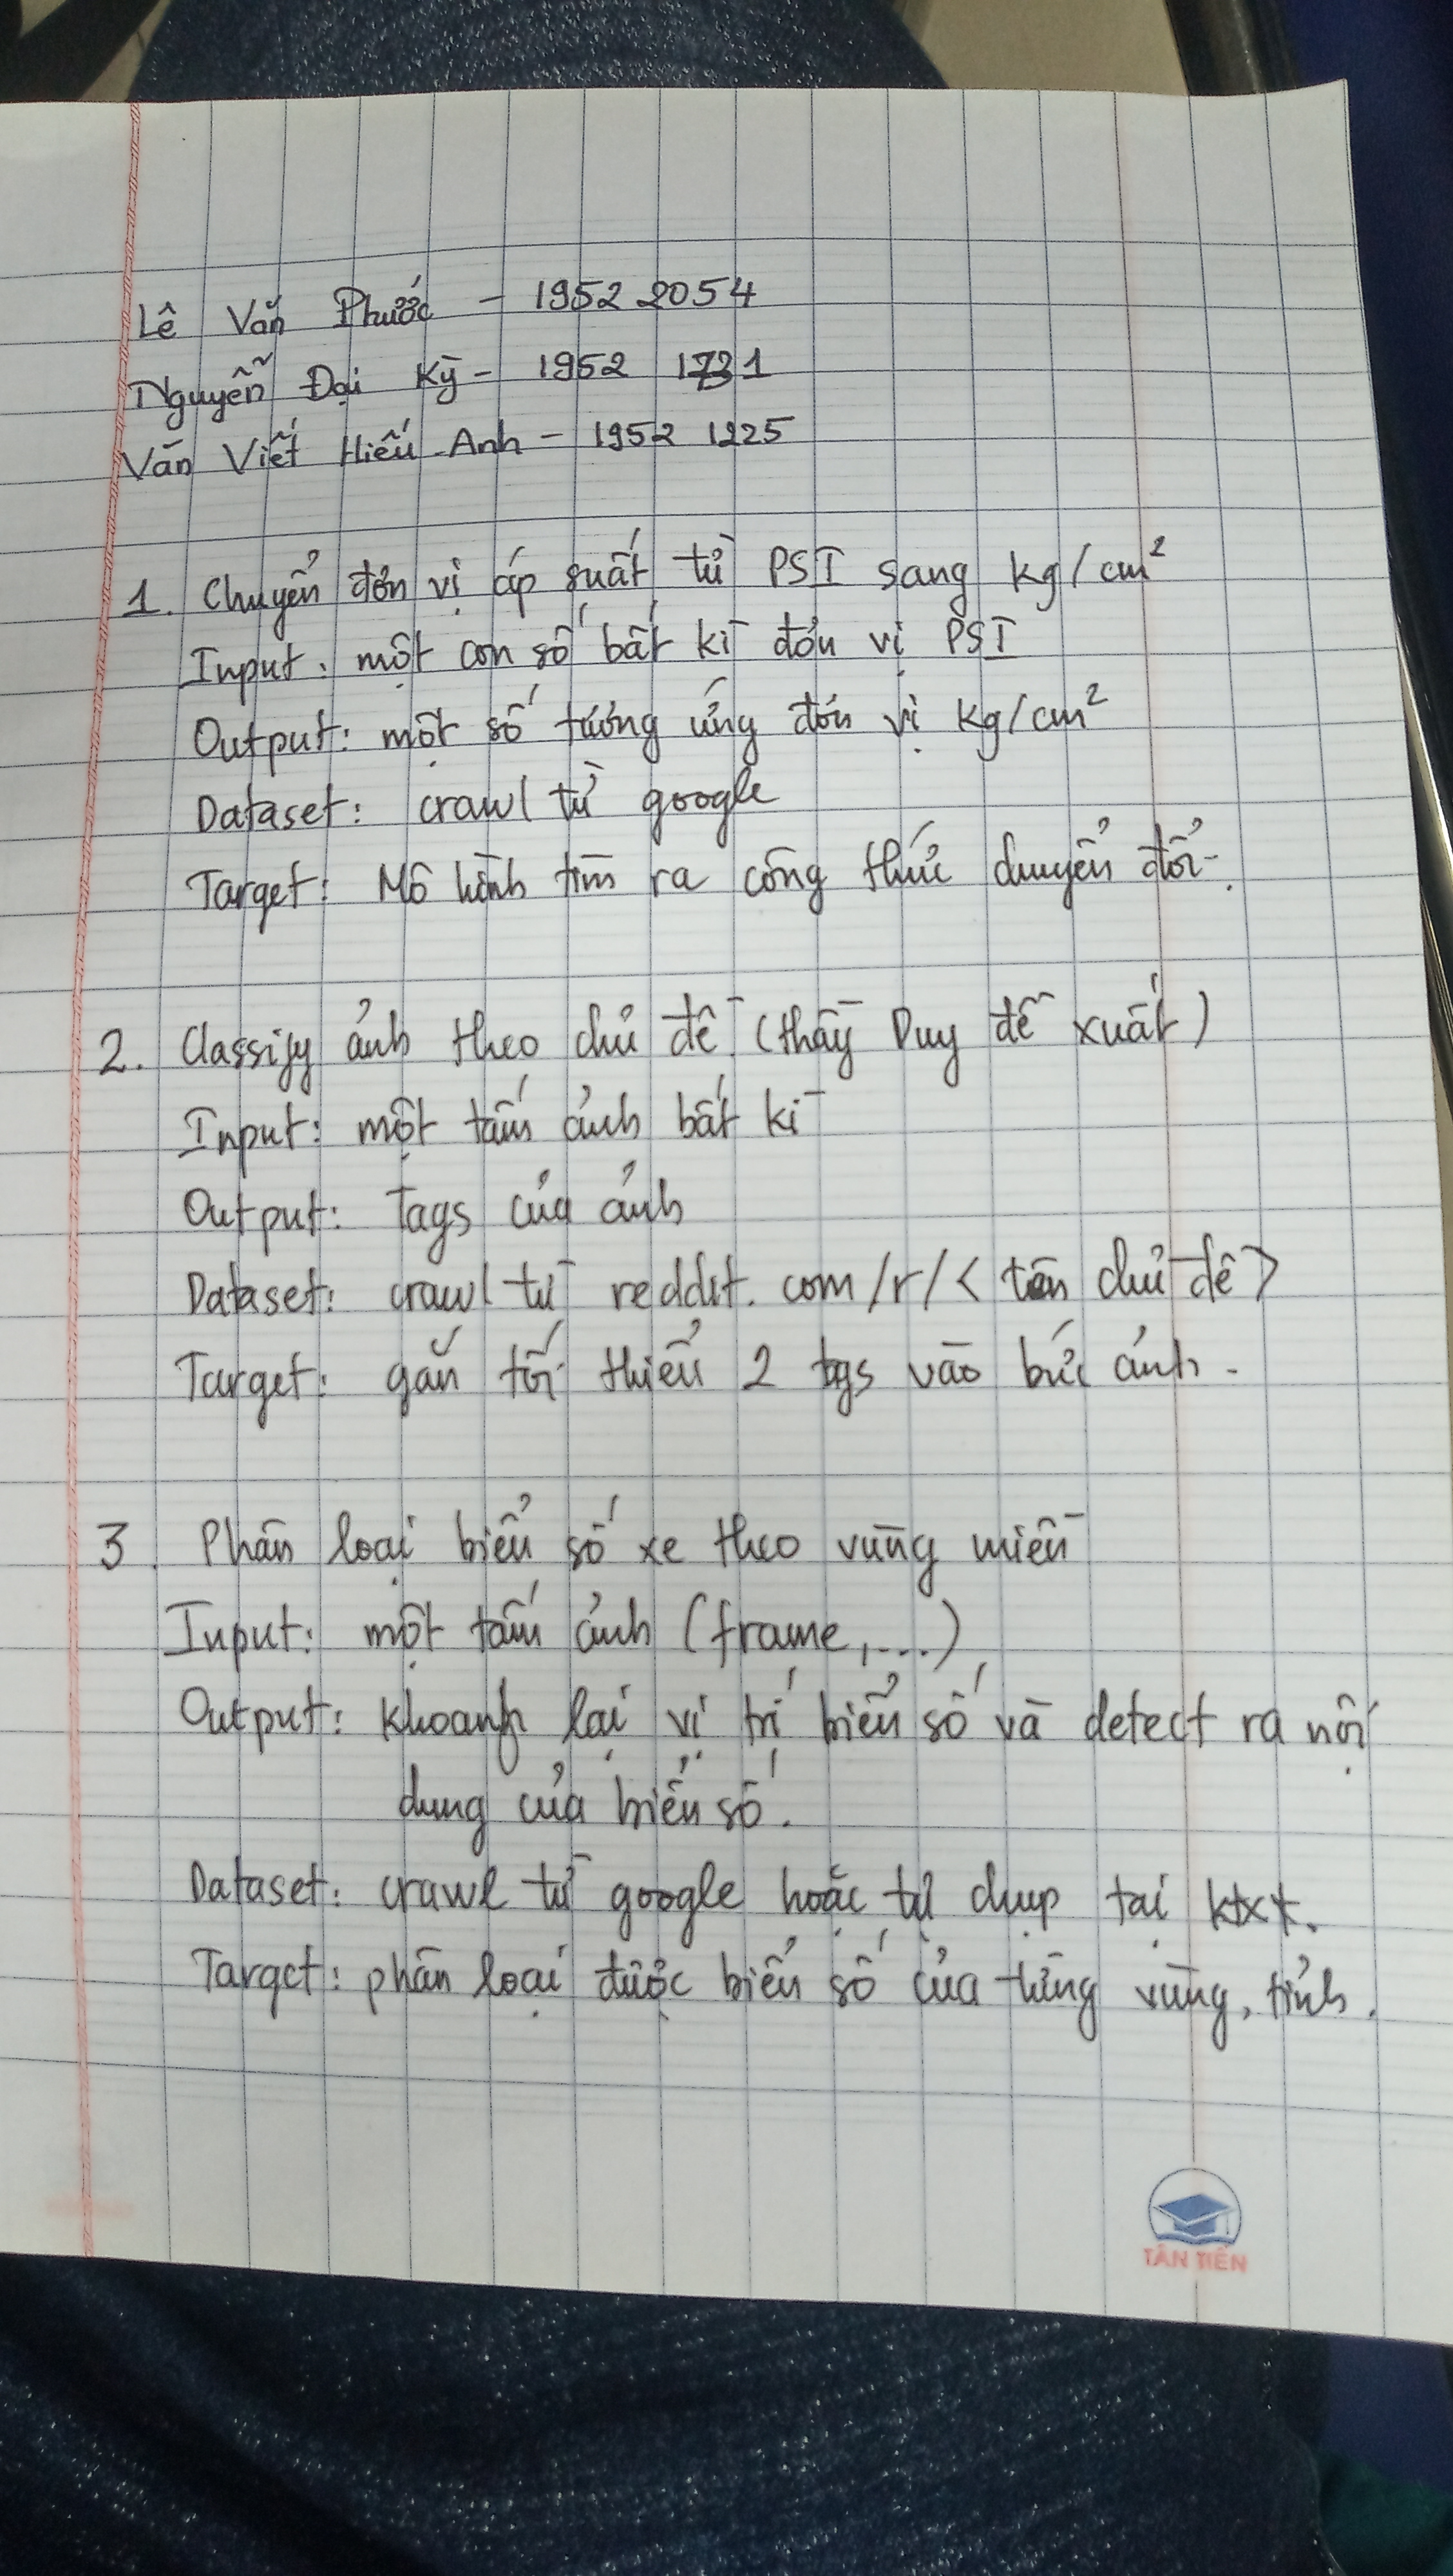 Lê Văn Phước - 1952 2054
Nguyễn Đại Kỳ - 1952 1731
Văn Viết Hiếu Anh - 1952 1225
1. Chuyển đơn vị áp suất từ PSI sang kg/cm²
Input: một con số bất kì đơn vị PSI
Output: một số tương ứng đơn vị kg/cm²
Dataset: crawl từ google
Target: Mô hình tìm ra công thức chuyển đổi.
2. Classify ảnh theo chủ đề (thầy Duy đề xuất)
Input: một tấm ảnh bất kì
Output: Tags của ảnh
Dataset: crawl từ reddit.com/r/<tên chủ đề>
Target: gắn tối thiểu 2 tags vào bức ảnh.
3. Phân loại biển số xe theo vùng miền
Input: một tấm ảnh (frame,...)
Output: khoanh lại vị trí biển số và detect ra nội
dung của biển số.
Dataset: crawl từ google hoặc tự chụp tại ktxt.
Target: phân loại được biển số của từng vùng, tỉnh.
TÂN TIẾN